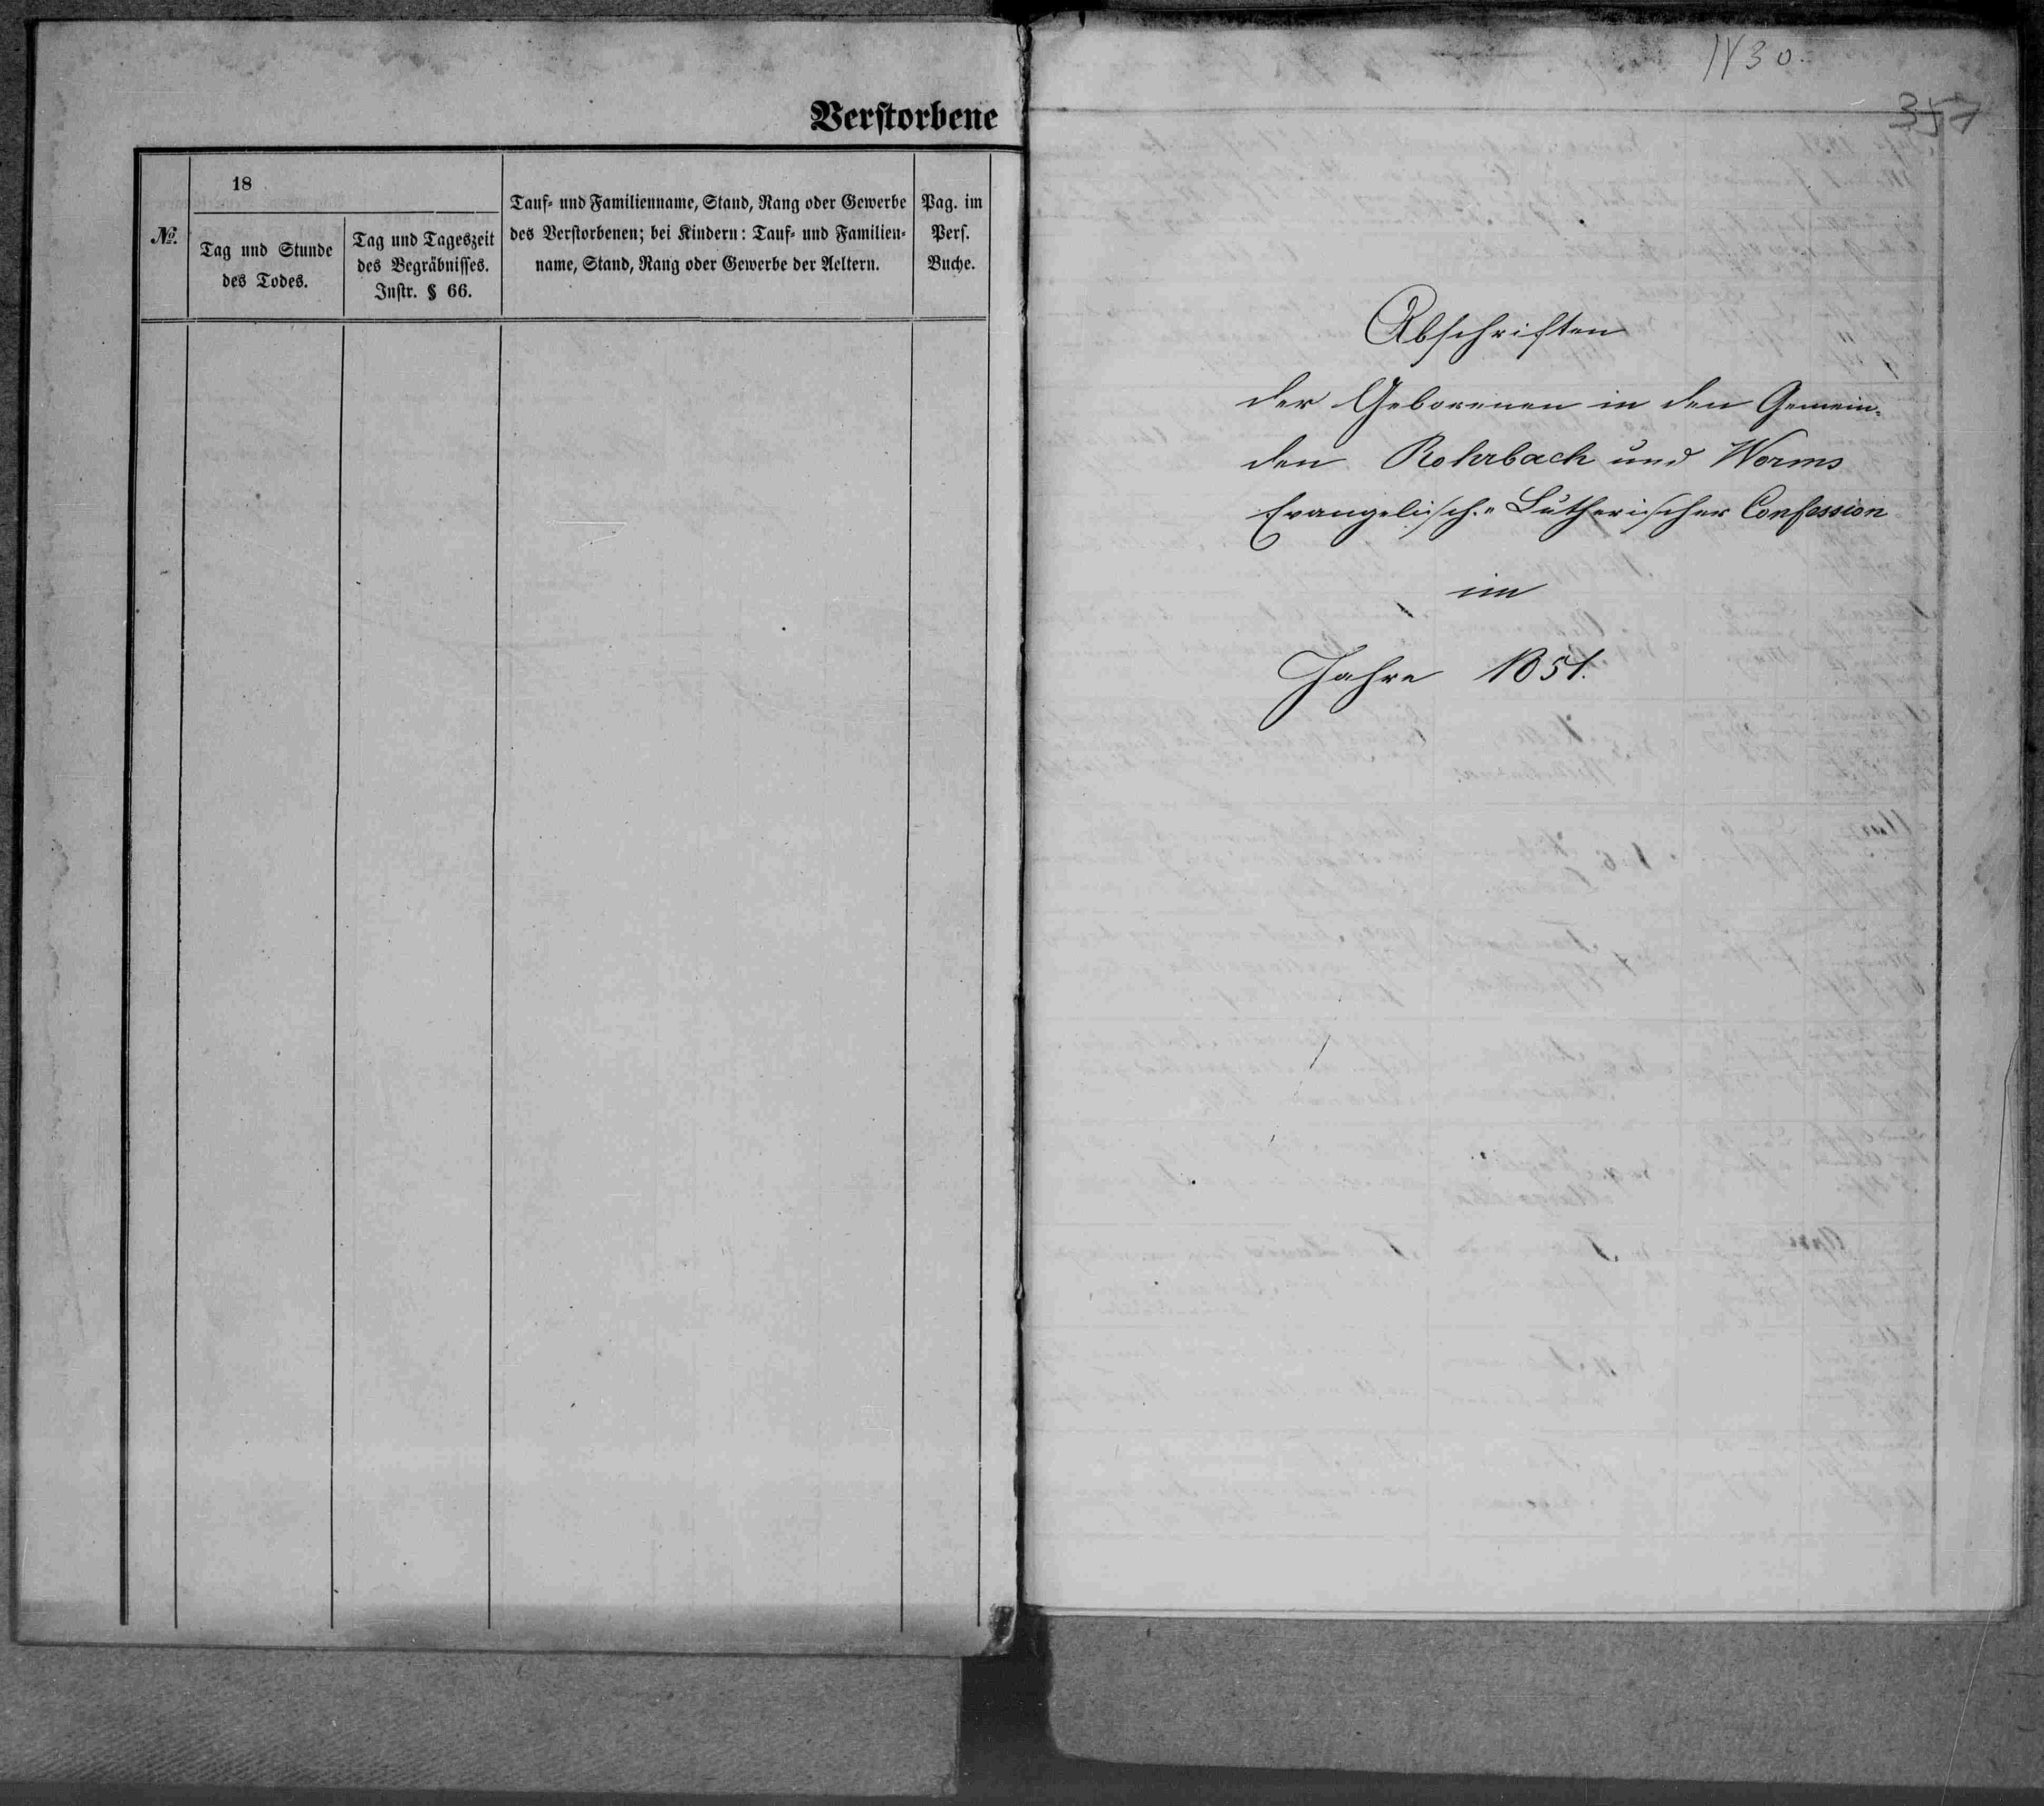 Verstorbene
№.
18
Tag und Stunde
des Todes.
Tag und Tageszeit
des Begräbnisses.
Instr. § 66.
Tauf- und Familienname, Stand, Rang oder Gewerbe
des Verstorbenen; bei Kindern: Tauf- und Familien-
name, Stand, Rang oder Gewerbe der Aeltern.
Pag. im
Pers.
Buche.
1430.
357
Abschriften
der Geborenen in den Gemein-
den Rohrbach und Worms
Evangelisch-Lutherischer Confession
im
Jahre 1851.